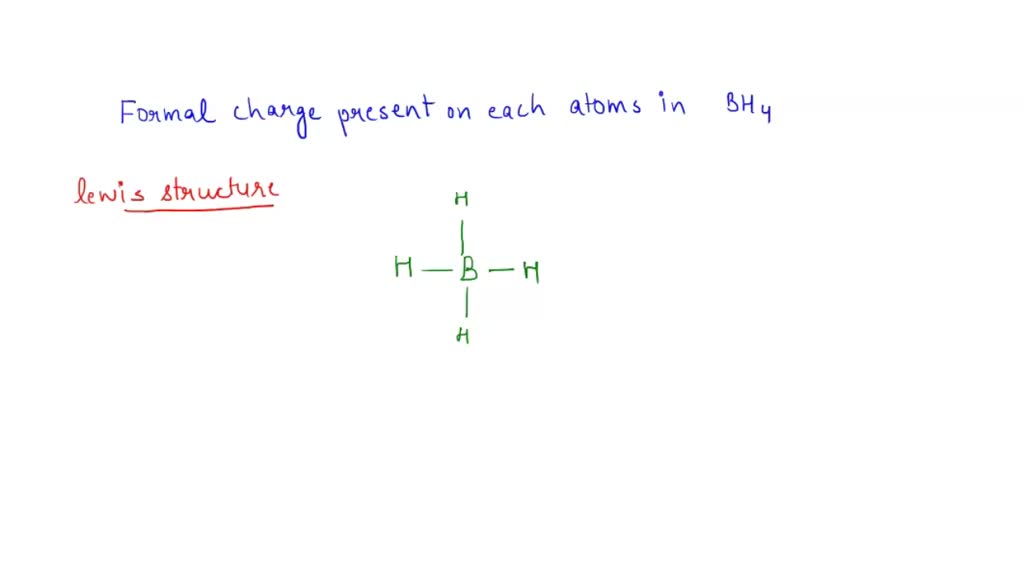 Formal charge present on each atoms in BH4
lewis structure
H
H — B — H
H